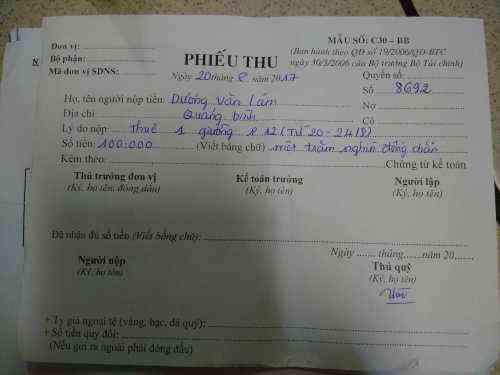 MẪU SỐ: C30 – BB
Đơn vị:
(Ban hành theo QĐ số 19/2006/QĐ-BTC
Bộ phận:
PHIẾU THU
ngày 30/3/2006 của Bộ trưởng Bộ Tài chính)
Mã đơn vị SDNS:
Quyển số:
Ngày 20 tháng 8 năm 2017
Số 8692
Họ, tên người nộp tiền: Dương Văn Lãm
Nợ
Địa chỉ Quảng bình
Có
Lý do nộp thuê 1 giường P 12 (Từ 20-24/8)
Số tiền: 100.000 (Viết bằng chữ) một trăm nghìn đồng chẵn
Kèm theo: Chứng từ kế toán
Thủ trưởng đơn vị Kế toán trưởng Người lập
(Ký, họ tên, đóng dấu) (Ký, họ tên) (Ký, họ tên)
Đã nhận đủ số tiền (Viết bằng chữ):
Ngày ....... tháng ...... năm 20.......
Người nộp Thủ quỹ
(Ký, họ tên) (Ký, họ tên)
+ Tỷ giá ngoại tệ (vàng, bạc, đá quý):
+ Số tiền quy đổi:
(Nếu gửi ra ngoài phải đóng dấu)